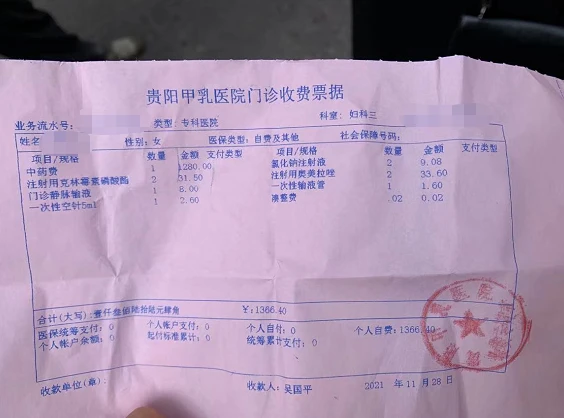 贵阳甲乳医院门诊收费票据
业务流水号: 类型: 专科医院 科室: 妇科三
姓名 性别: 女 医保类型: 自费及其他 社会保障号码:
项目/规格 数量 金额 支付类型 项目/规格 数量 金额 支付类型
中药费 1 1280.00 氯化钠注射液 2 9.08
注射用克林霉素磷酸酯 2 31.50 注射用奥美拉唑 2 33.60
门诊静脉输液 1 8.00 一次性输液管 1 1.60
一次性空针5ml 1 2.60 凑整费 .02 0.02
合计(大写):壹仟叁佰陆拾陆元肆角 ¥:1366.40
医保统筹支付: 0 个人帐户支付: 0 个人自付: 0 个人自费: 1366.40
个人帐户余额: 0 起付标准累计: 0 统筹累计支付: 0
收款单位(章): 收款人: 吴国平 2021 年 11 月 28 日